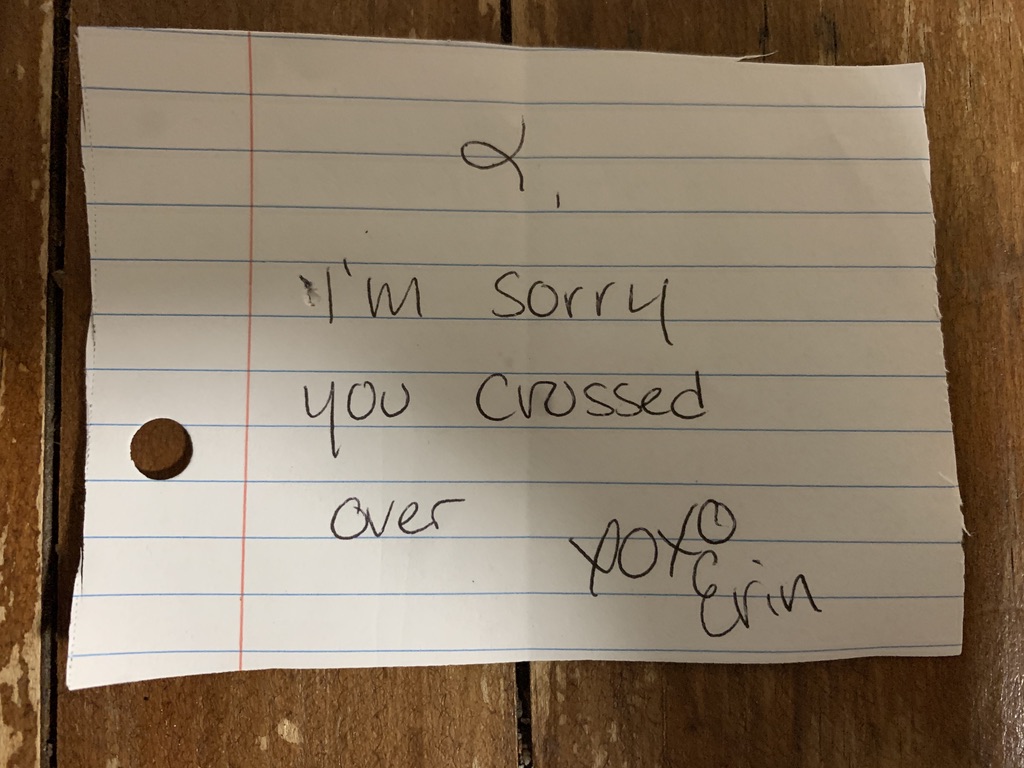 I'm sorry
you crossed
over
xoxo
Erin